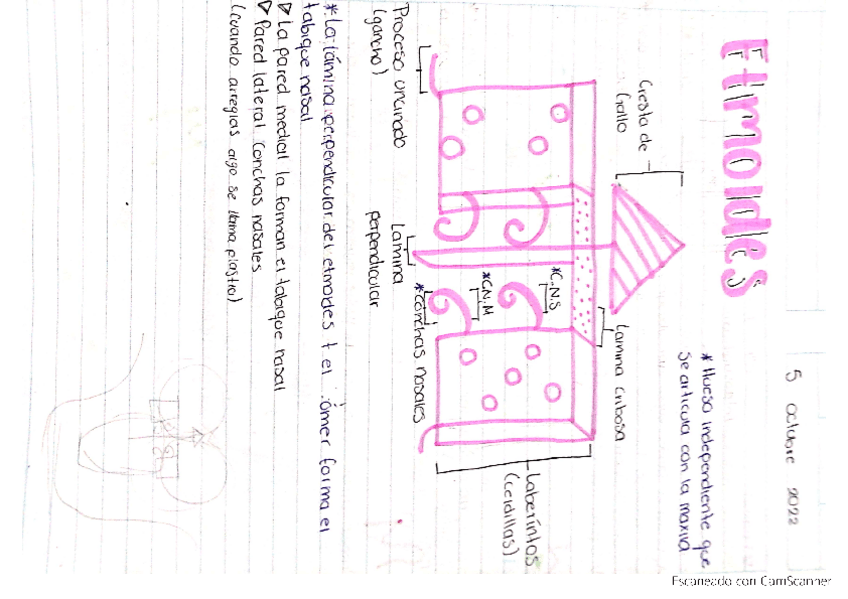 5 octubre 2022
Etmoides
* Hueso independiente que
se articula con la maxila
Cresta de
Gallo
Lamina cribosa
*C.N.S
*C.N.M
Laberintos
(celdillas)
* Conchas nasales
Lamina
perpendicular
Proceso uncinado
(gancho)
* La lámina perpendicular del etmoides y el vómer forma el
tabique nasal
▷ La pared medial la forman el tabique nasal
▷ Pared lateral conchas nasales
(cuando arreglas algo se llama plastia)
Escaneado con CamScanner